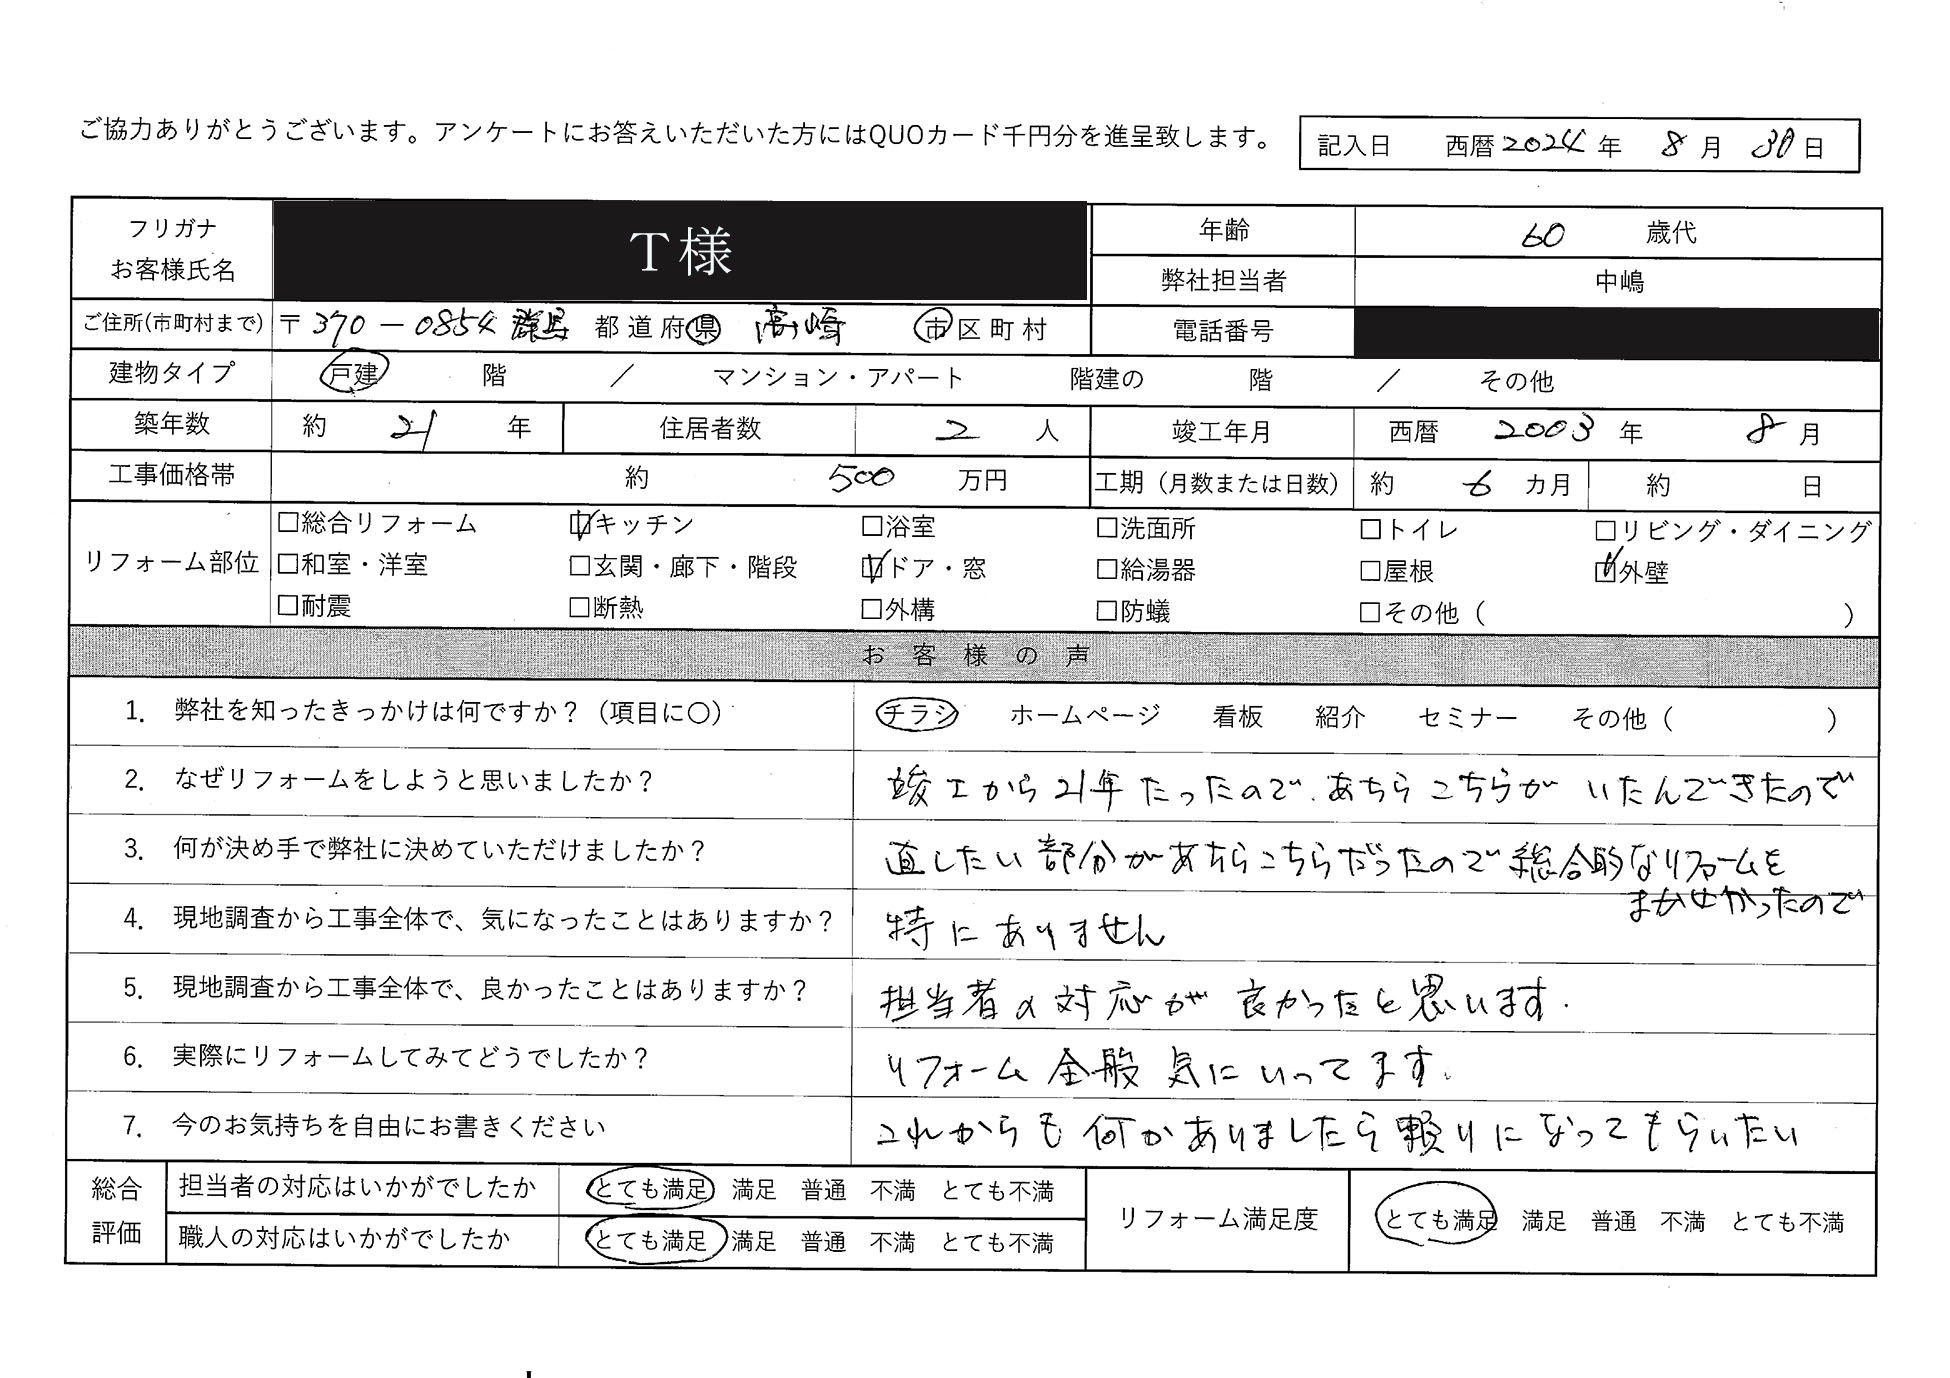 ご協力ありがとうございます。アンケートにお答えいただいた方にはQUOカード千円分を進呈致します。
記入日 西暦2024年 8月 30日
フリガナ
お客様氏名 T様
年齢 60 歳代
弊社担当者 中嶋
ご住所(市町村まで) 〒370-0854 群馬 都道府県 高崎 市区町村
電話番号
建物タイプ 戸建 階 / マンション・アパート 階建の 階 / その他
築年数 約 21 年 住居者数 2 人 竣工年月 西暦 2003 年 8 月
工事価格帯 約 500 万円 工期（月数または日数） 約 6 カ月 約 日
リフォーム部位
□総合リフォーム ☑キッチン □浴室 □洗面所 □トイレ □リビング・ダイニング
□和室・洋室 □玄関・廊下・階段 ☑ドア・窓 □給湯器 □屋根 ☑外壁
□耐震 □断熱 □外構 □防蟻 □その他（ ）
お客様の声
1. 弊社を知ったきっかけは何ですか？（項目に○） チラシ ホームページ 看板 紹介 セミナー その他（ ）
2. なぜリフォームをしようと思いましたか？ 竣工から21年たったので、あちらこちらがいたんできたので
3. 何が決め手で弊社に決めていただけましたか？ 直したい部分があちらこちらだったので総合的なリフォームを
まかせたかったので
4. 現地調査から工事全体で、気になったことはありますか？ 特にありません
5. 現地調査から工事全体で、良かったことはありますか？ 担当者の対応が良かったと思います.
6. 実際にリフォームしてみてどうでしたか？ リフォーム全般気にいってます。
7. 今のお気持ちを自由にお書きください これからも何かありましたら頼りになってもらいたい
総合評価
担当者の対応はいかがでしたか とても満足 満足 普通 不満 とても不満
職人の対応はいかがでしたか とても満足 満足 普通 不満 とても不満
リフォーム満足度 とても満足 満足 普通 不満 とても不満